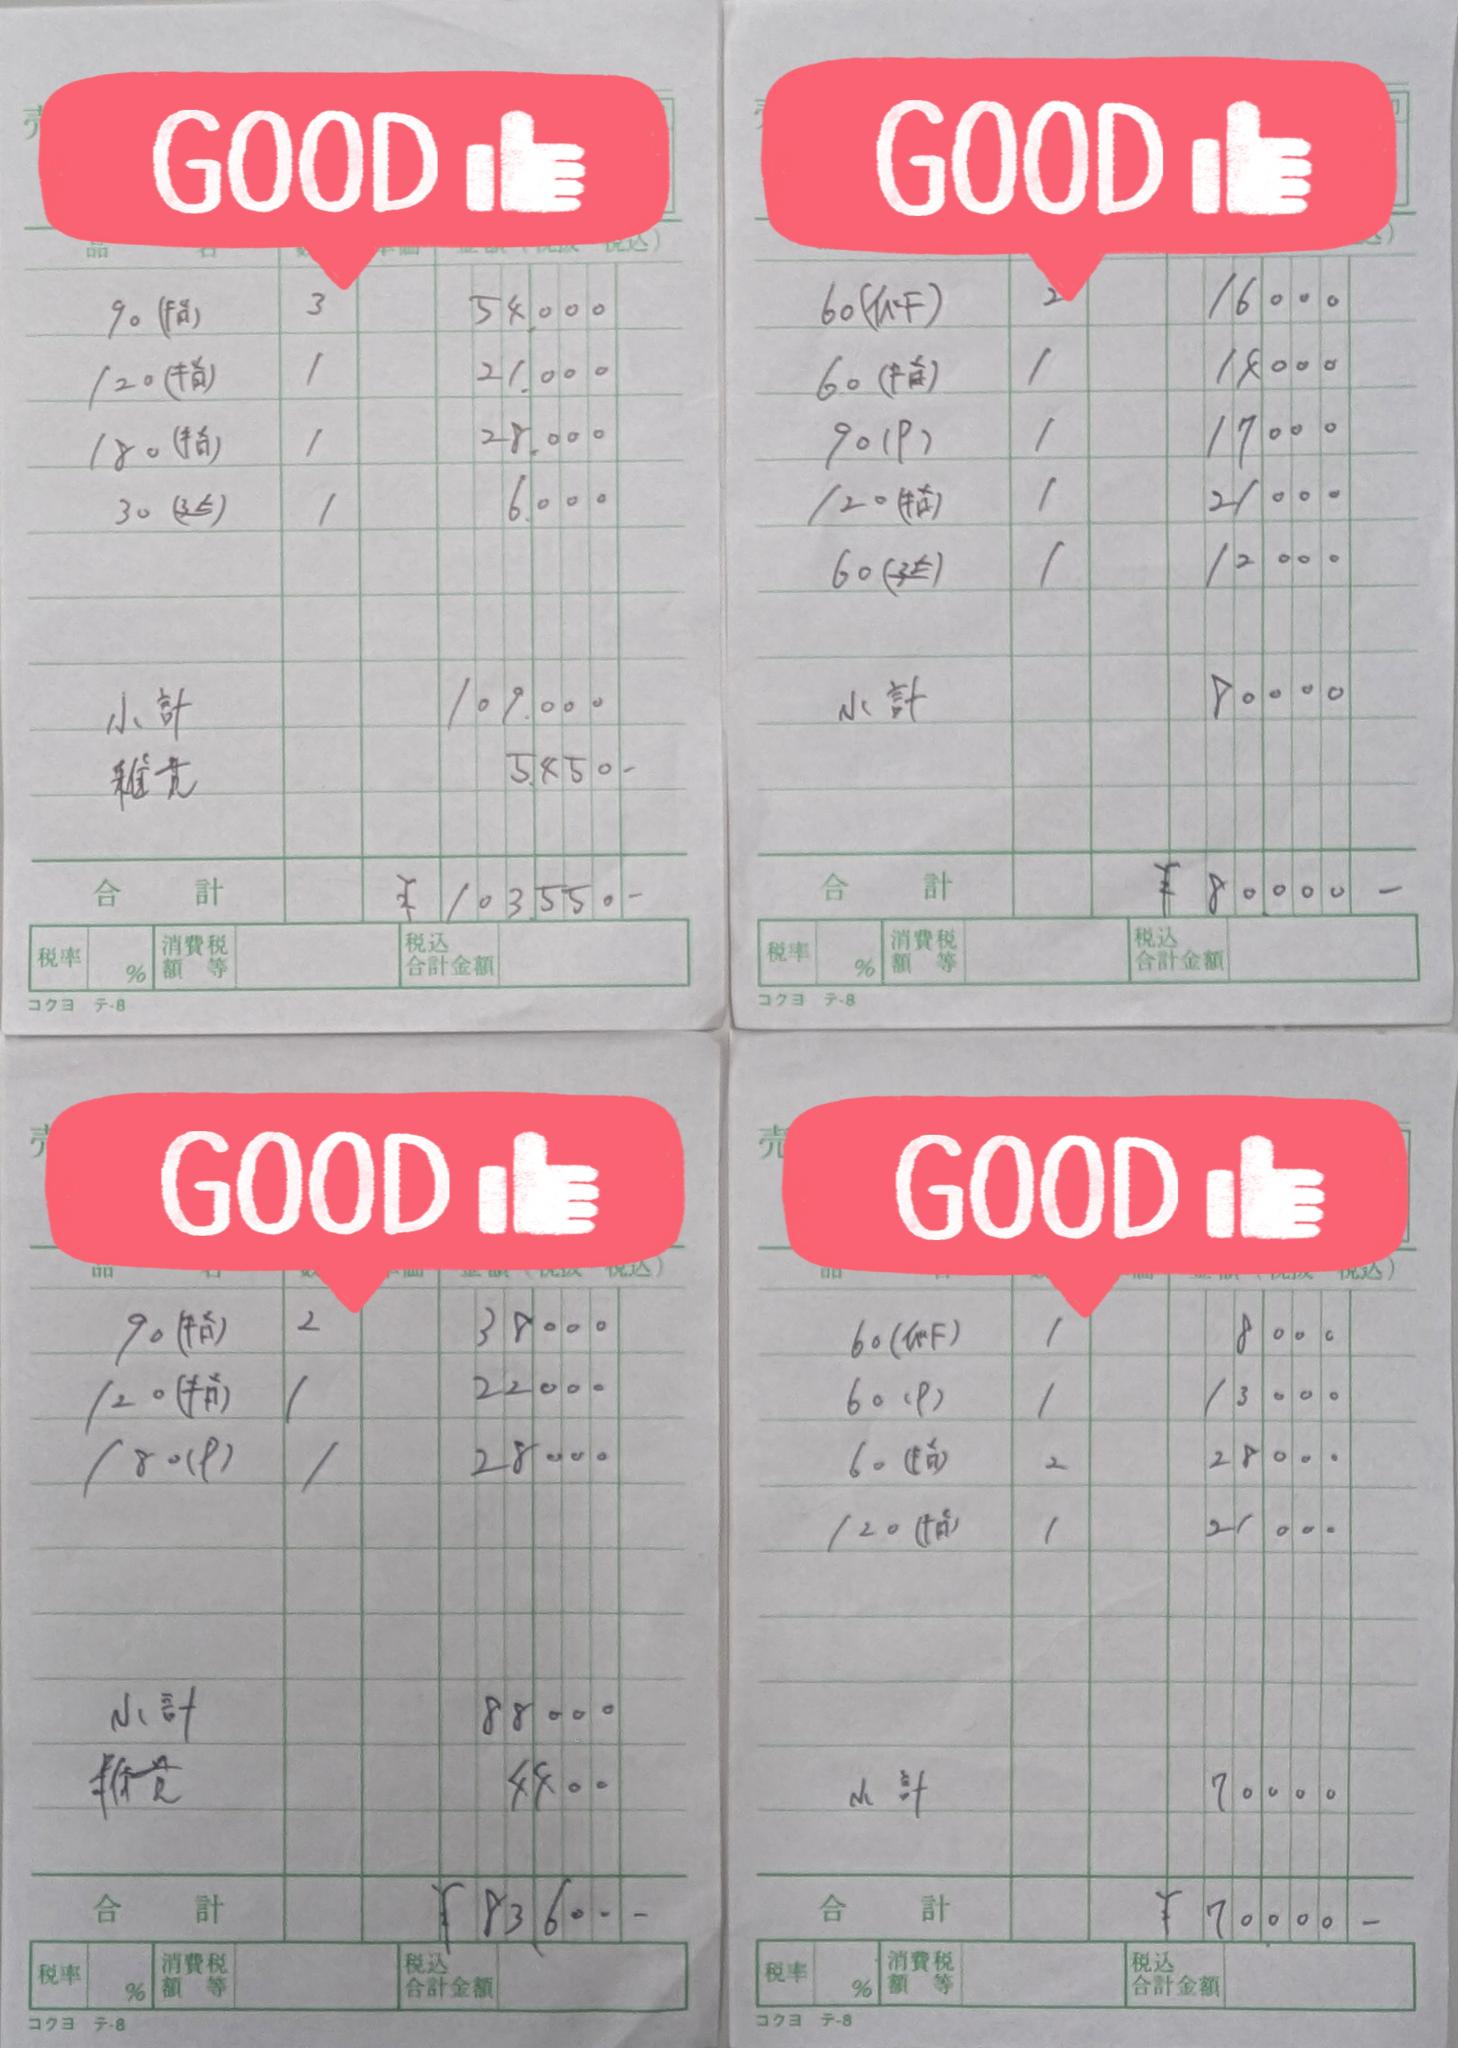 GOOD
90(指) 3 54,000
120(指) 1 21,000
180(指) 1 28,000
30(延) 1 6,000
小計 109,000
雑費 5,450-
合計 ¥103,550-
税率 % 消費税額等 税込合計金額
コクヨ テ-8
GOOD
60 2 16000
60(指) 1 14000
90(P) 1 17000
120(指) 1 21000
60(延) 1 12000
小計 80000
合計 ¥80000-
税率 % 消費税額等 税込合計金額
コクヨ テ-8
GOOD
90(指) 2 38000
120(指) 1 22000
180(P) 1 28000
小計 88000
雑費 4400
合計 ¥83,600-
税率 % 消費税額等 税込合計金額
コクヨ テ-8
GOOD
60 1 8000
60(P) 1 13000
60(指) 2 28000
120(指) 1 21000
小計 70000
合計 ¥70000-
税率 % 消費税額等 税込合計金額
コクヨ テ-8